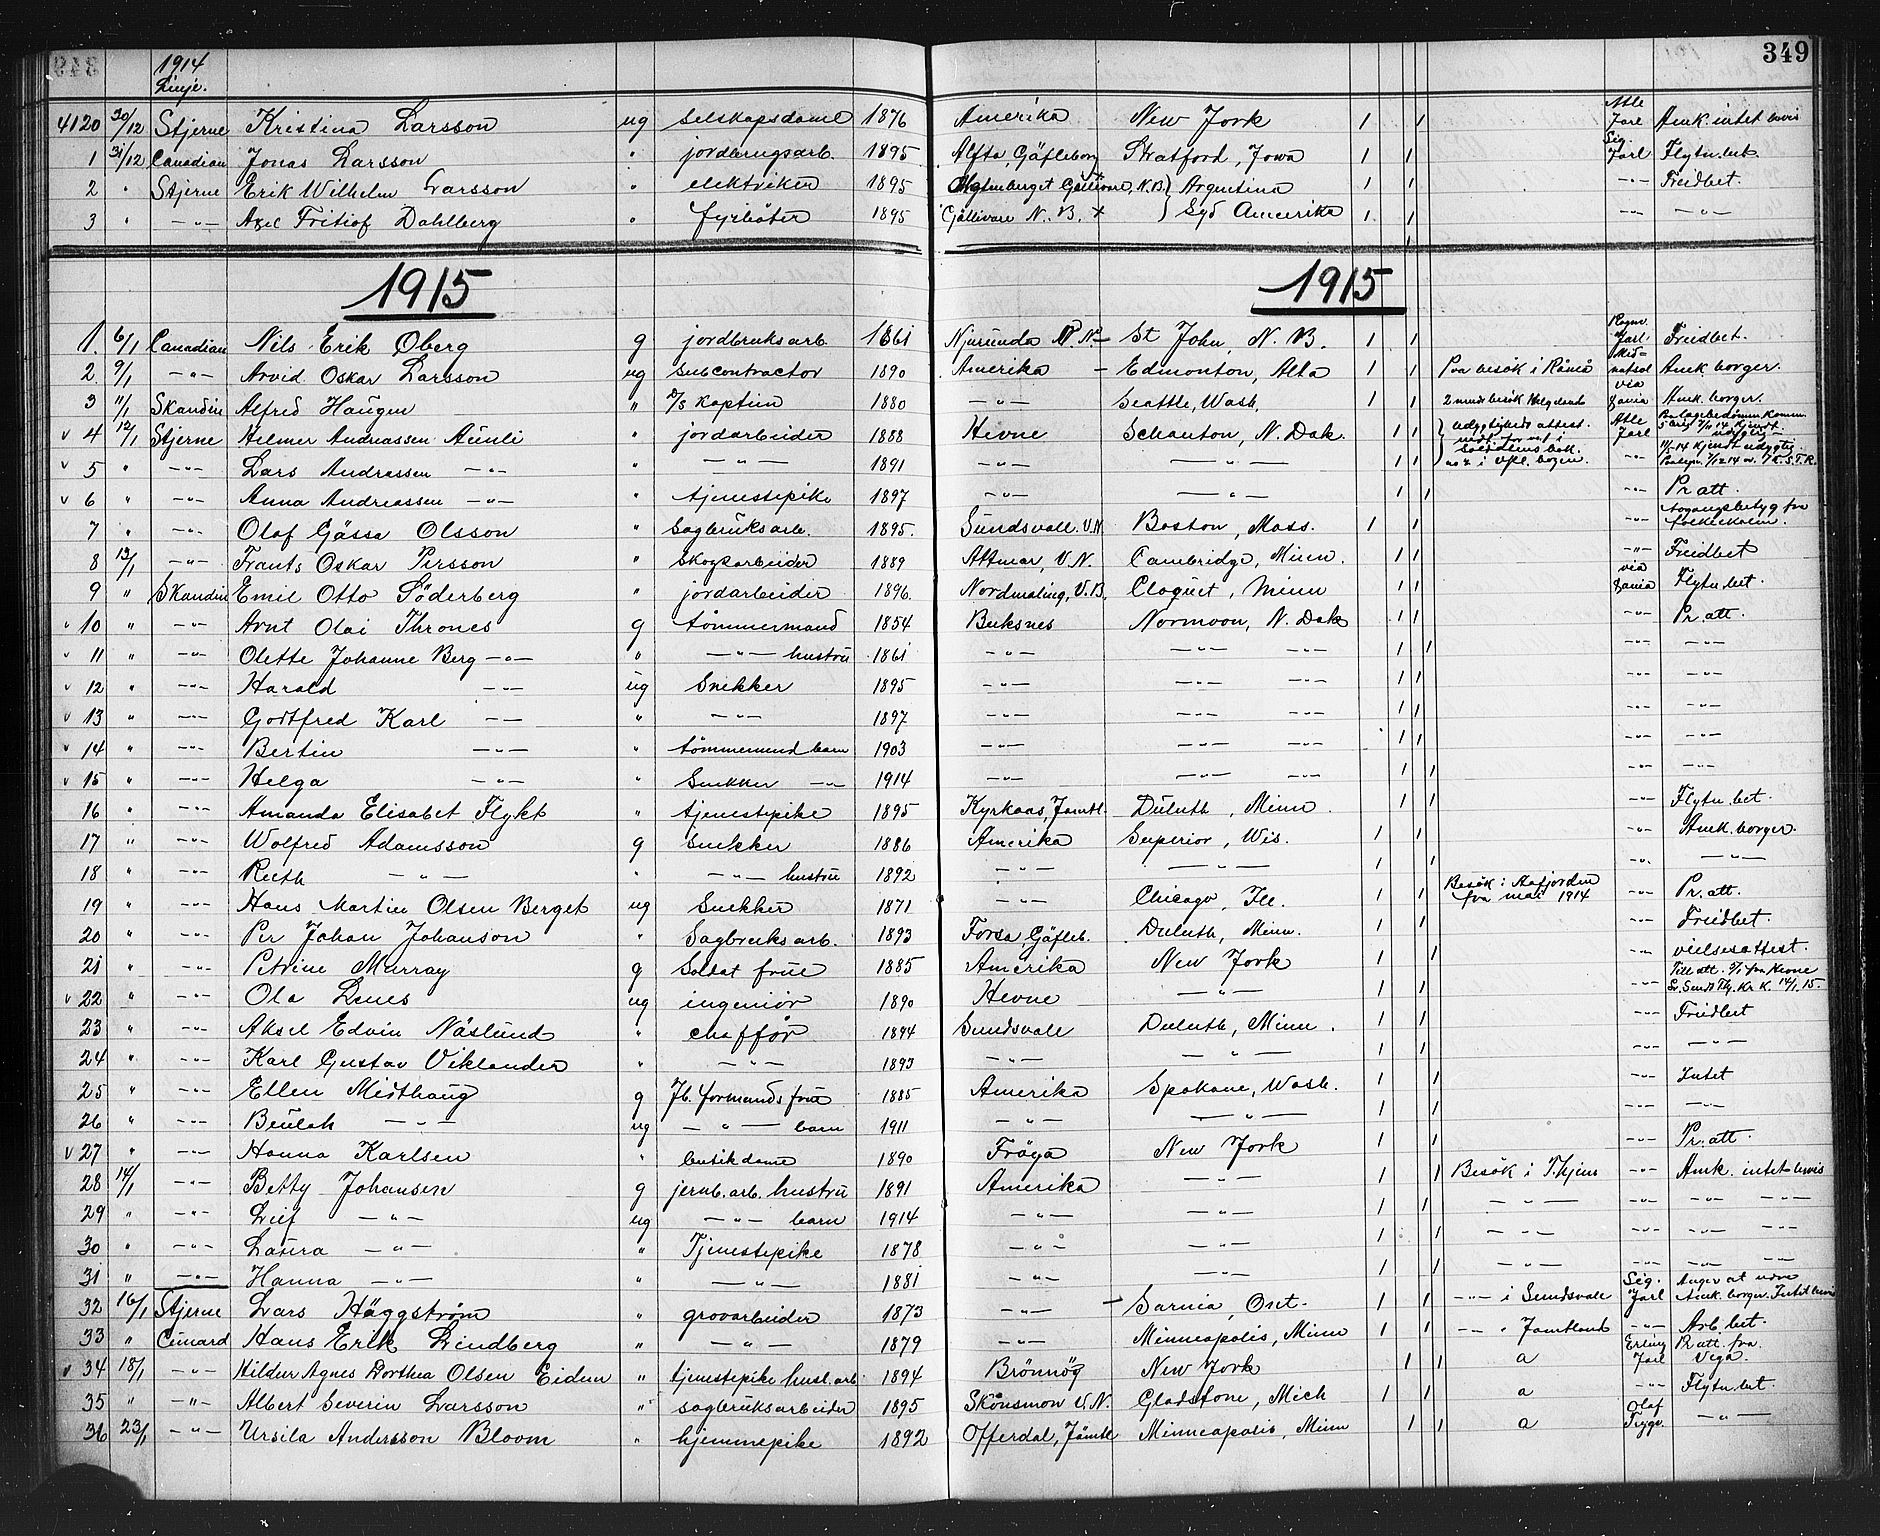 349
1914
Linje.
4120 30/12 Stjerne Kristina Larsson ug Selskapsdame 1876 Amerika New York 1 1 Atle Jarl Amk. intet bevis
1 31/12 Canadian Jonas Larsson " jordbrugsarb. 1895 Alfta, Gäfleborg Stratford, Jowa 1 1 Sig. Jarl Flytn.bet.
2 " Stjerne Erik Wilhelm Larsson " elektriker 1895 Gällivare, N.B. Argentina 1 1 -"- Freidbet.
3 " -"- Axel Fritiof Dahlberg " fyrbøter 1895 Gällivare N. B. Syd Amerika 1 1 -"- -"-
1915 1915
1. 6/1 Canadian Nils Erik Øberg g jordbruksarb. 1861 Njurunda V.N. St John, N. B. 1 1 Ragnv. Jarl Freidbet.
2. 9/1 -"- Arvid Oskar Larsson ug Subcontractor 1890 Amerika Edmonton, Alta 1 1 Paa besøk i Råneå Midnatsol Amk. borger.
3 11/1 Skandin Alfred Haugen " D/S Kaptein 1880 -"- Seattle, Wash. 1 1 2 mnds besøk Helgeland via Zania Amk. borger.
v 4 12/1 Stjerne Helmer Andreassen Aunli " jordarbeider 1888 Hevne Schanton, N. Dak. 1 1 Udygtigheds attest. Atle Jarl
v 5 " -"- Lars Andreassen -"- " -"- 1891 -"- -"- 1 1 -"-
v 6 " -"- Anna Andreassen -"- " tjenestepike 1897 -"- -"- 1 1 -"- Pr att.
7 " -"- Olof Gässa Olsson " Sagbruksarb. 1895. Sundsvall. V.N. Boston, Mass. 1 1 -"- Avgangsbetyg fra folkeskolan.
8 13/1 -"- Frants Oskar Persson " Skogsarbeider 1889 Attmar, V.N. Cambridge, Minn. 1 1 -"- Freidbet
9 " Skandin Emil Otto Söderberg " jordarbeider 1896. Nordmaling, V.B. Cloquet, Minn 1 1 via Zania Flytn.bet.
v 10 " -"- Arnt Olai Thrones g tömmermand 1854 Buksnes Normoon, N. Dak 1 1 -"- Pr. att.
v 11 " -"- Olette Johanne Berg -"- " -"- hustru 1861 -"- -"- -"- 1 1 -"- -"-
v 12 " -"- Harald -"- ug Snekker 1895 -"- -"- -"- 1 1 -"- -"-
v 13 " -"- Godtfred Karl -"- " -"- 1897 -"- -"- -"- 1 1 -"- -"-
v 14 " -"- Bertin -"- " tömmermand barn 1903 -"- -"- -"- 1 1 -"- -"-
v 15 " -"- Helga -"- " Snekker -"- 1914 -"- -"- -"- 1 1 -"- -"-
16 " -"- Amanda Elisabet Flykt " tjenestepike 1895 Kyrkaas, Jämtl. Duluth, Minn. 1 1 -"- Flytn.bet.
17 " -"- Wolfred Adamsson g Snekker 1886 Amerika Superior, Wis. 1 1 -"- Amk. borger.
18 " -"- Ruth -"- " -"- hustru 1892 -"- -"- 1 1 -"- -"-
19 " -"- Hans Martin Olsen Berget ug Snekker 1871 -"- Chicago, Ill. 1 1 Besøk i Aafjorden fra mai 1914 -"- Pr. att.
20 " -"- Per Johan Johanson " Sagbruksarb. 1893 Forsa, Gäfleb. Duluth, Minn. 1 1 -"- Freidbet.
21 " -"- Petrine Murray g Soldat frue 1885 Amerika New York 1 1 -"- vielsesattest.
v 22 " -"- Ola Lenes ug ingeniør 1890 Hevne -"- 1 1 -"- Till att. 9/1 fra Hevne
23 " -"- Aksel Edvin Näslund " chaffør 1894 Sundsvall Duluth, Minn. 1 1 Freidbet
24 " -"- Karl Gustav Viklander " -"- 1893 -"- -"- 1 1 -"-
25 " -"- Ellen Midthaug g Jb. formands frue 1885 Amerika Spokane, Wash. 1 1 Intet
26 " -"- Beulah -"- ug -"- barn 1911 -"- -"- 1 1 -"- -"-
v 27 " -"- Hanna Karlsen " butikdame 1890 Fröya New York 1 1 -"- Pr. att.
28 14/1 -"- Betty Johansen g jernb.arb. hustru 1891 Amerika -"- 1 1 Besök i T.hjem -"- Amk. intet bevis
29 " -"- Leif -"- ug -"- barn 1914 -"- -"- 1 1 -"- -"- -"- -"-
30 " -"- Laura -"- " Tjenestepike 1878 -"- -"- 1 1 -"- -"- -"- -"-
31 " -"- Hanna -"- " -"- 1881 -"- -"- 1 1 -"- -"- -"- -"-
32 16/1 Stjerne Lars Häggström " grovarbeider 1873 -"- Sarnia, Ont. 1 1 -"- i Sundsvall Sig. Jarl Angav at være Amk. borger. Intet bevis
33 " Cunard Hans Erik Lindberg " -"- 1879 -"- Minneapolis, Minn 1 1 -"- " Jämtland -"- Arb. bet.
v 34 18/1 -"- Hildur Agnes Dorthea Olsen Eidem " tjenestepike husl.arb. 1894 Brönnöy New York 1 1 a Erling Jarl Pr att. fra Vega.
35 " -"- Albert Severin Larsson " sagbruksarbeider 1895 Skönsmon V.N. Gladstone, Mich 1 1 a -"- Flytn.bet.
36 23/1 -"- Ursila Andersson Bloom " hjemmepike 1892 Offerdal, Jämtl Minneapolis, Minn 1 1 a Olaf Trygv. -"-